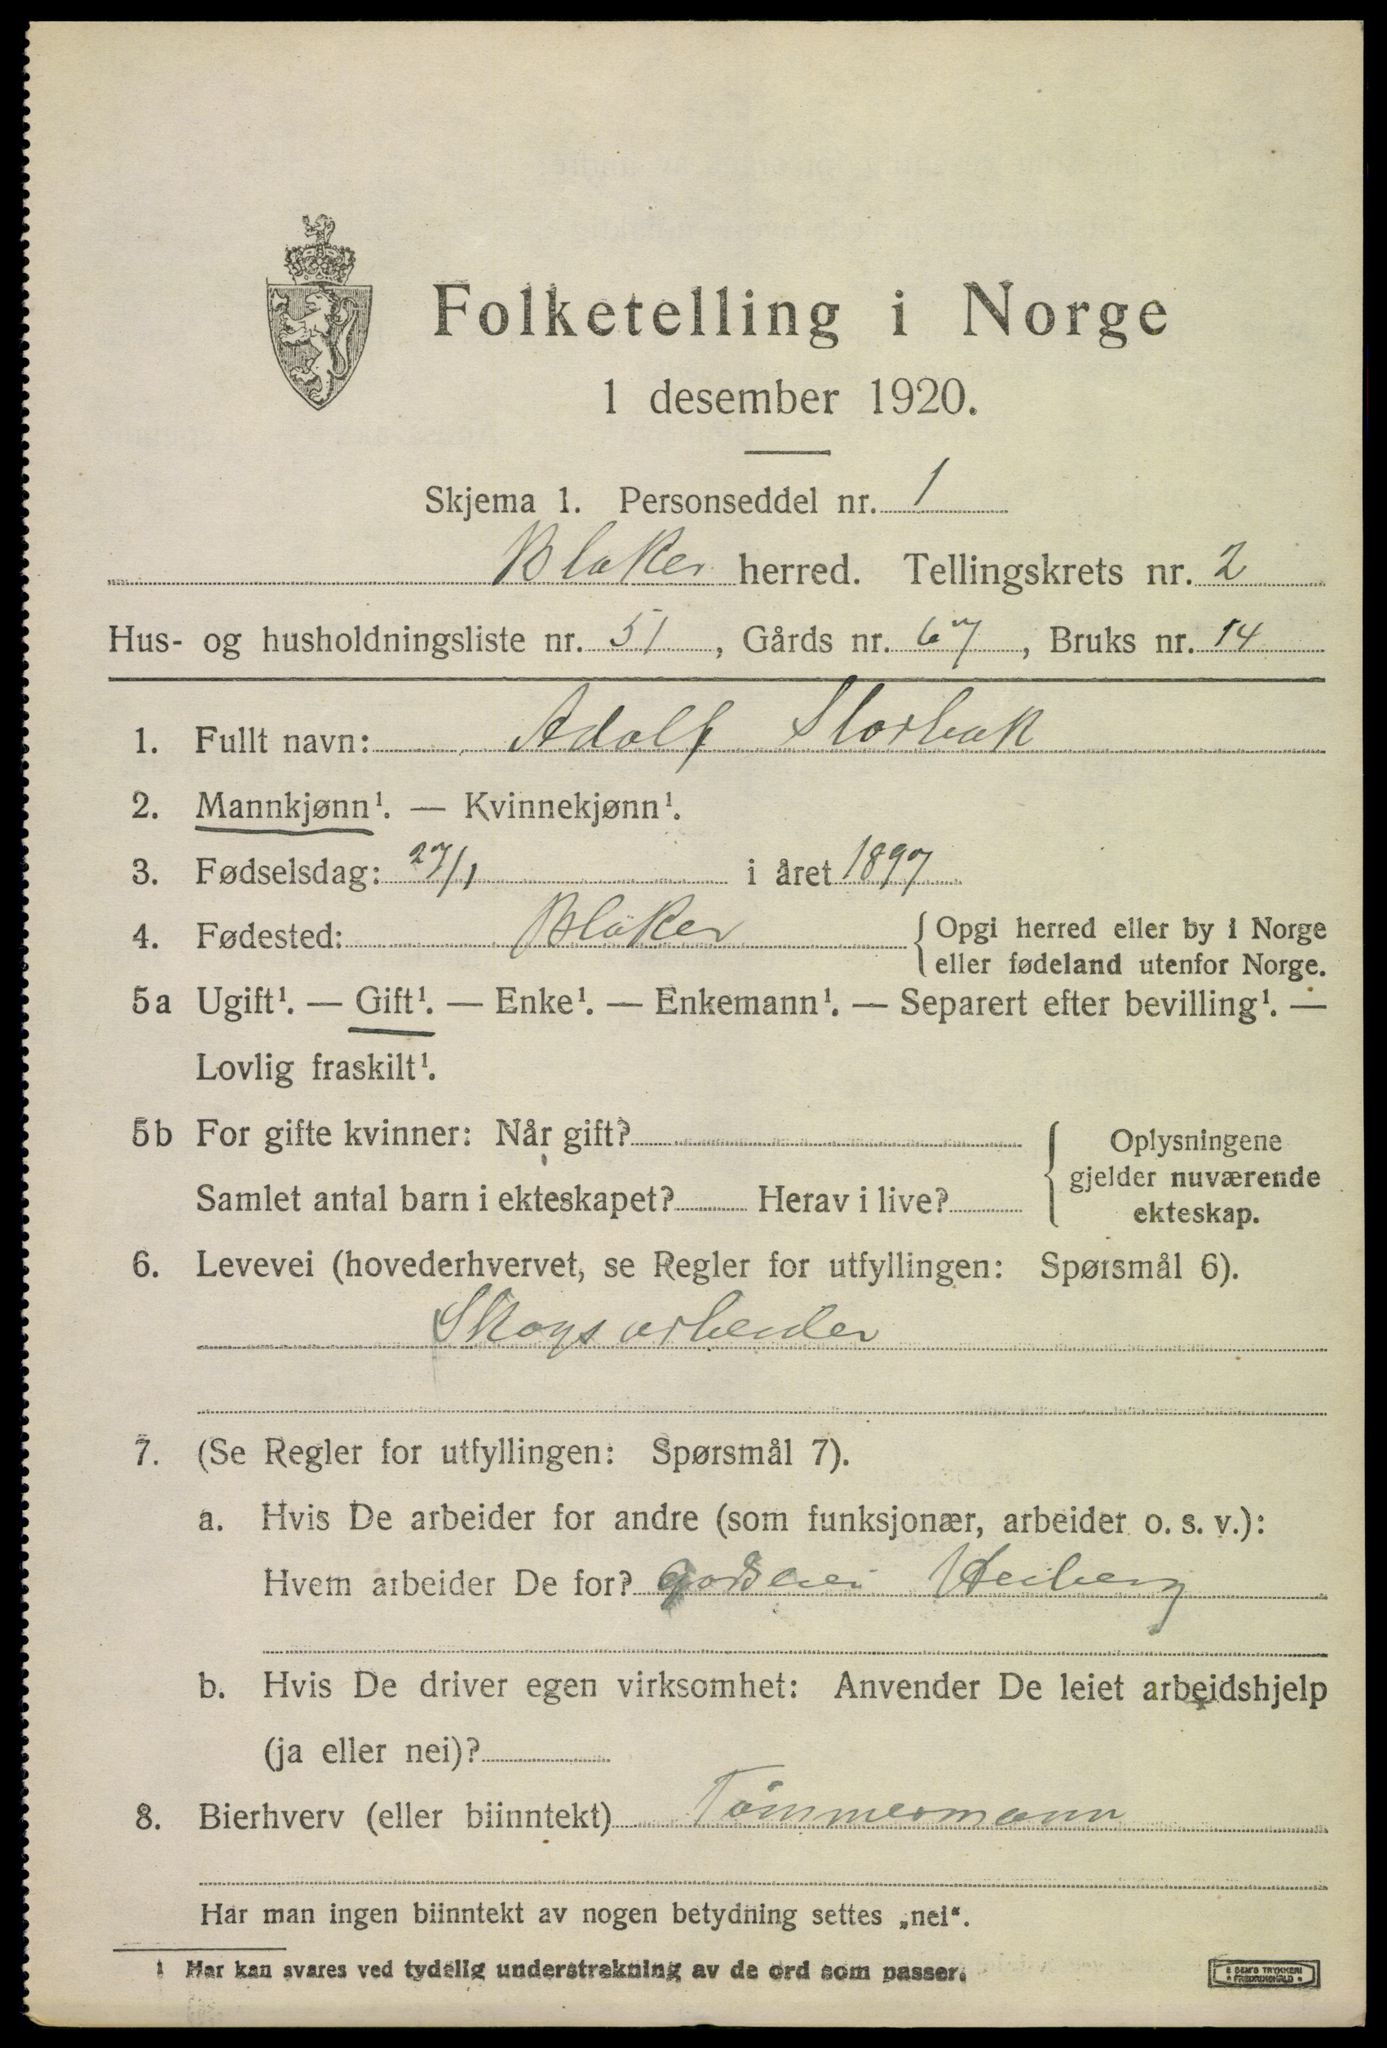 Folketelling i Norge
1 desember 1920.
Skjema 1. Personseddel nr. 1
Blaker herred. Tellingskrets nr. 2
Hus- og husholdningsliste nr. 51, Gårds nr. 67, Bruks nr. 14
1. Fullt navn: Adolf Storbak
2. Mannkjønn¹. — Kvinnekjønn¹.
3. Fødselsdag: 27/1 i året 1897
4. Fødested: Blaker { Opgi herred eller by i Norge
eller fødeland utenfor Norge.
5a Ugift¹. — Gift¹. — Enke¹. — Enkemann¹. — Separert efter bevilling¹. —
Lovlig fraskilt¹.
5b For gifte kvinner: Når gift?
Samlet antal barn i ekteskapet? Herav i live?
{ Oplysningene
gjelder nuværende
ekteskap.
6. Levevei (hovederhvervet, se Regler for utfyllingen: Spørsmål 6).
Skogsarbeider
7. (Se Regler for utfyllingen: Spørsmål 7).
a. Hvis De arbeider for andre (som funksjonær, arbeider o. s. v.):
Hvem arbeider De for? Heiberg
b. Hvis De driver egen virksomhet: Anvender De leiet arbeidshjelp
(ja eller nei)?
8. Bierhverv (eller biinntekt) Tømmermann
Har man ingen biinntekt av nogen betydning settes „nei“.
1 Her kan svares ved tydelig understrekning av de ord som passer.
E SEM'S TRYKKERI
FREDRIKSHALD